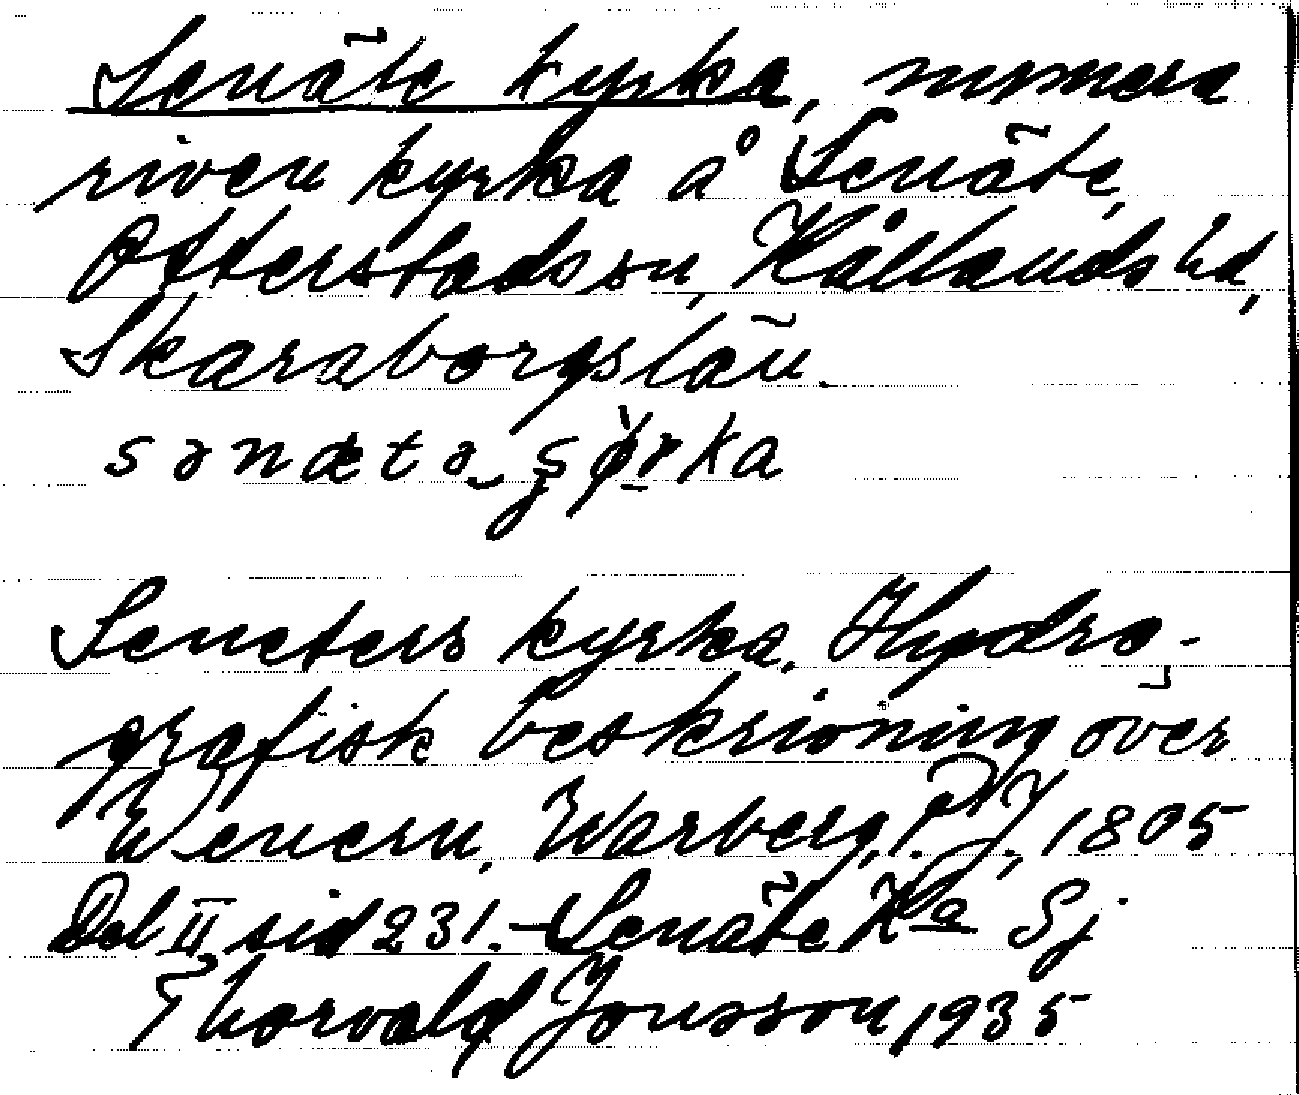 Senäte kyrka, numera
riven kyrka å Senäte,
Otterstads sn, Kållands hd,
Skaraborgs län.
sɘnætɘ
Seneters kyrka. Hydro-
grafisk beskrivning över
Wenern, Warberg, P. J., 1805
Del II sid 231. - Senäte Ka Sj
Thorvald Jonsson, 1935